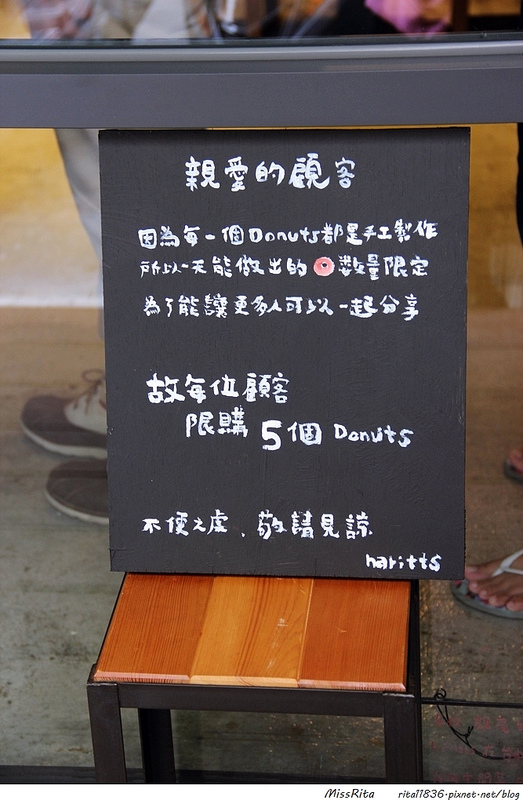 親愛的顧客
因為每一個Donuts都是手工製作
所以一天能做出的數量限定
為了能讓更多人可以一起分享
故每位顧客
限購5個Donuts
不便之處、敬請見諒
haritts
MissRita rita11836.pixnet.net/blog